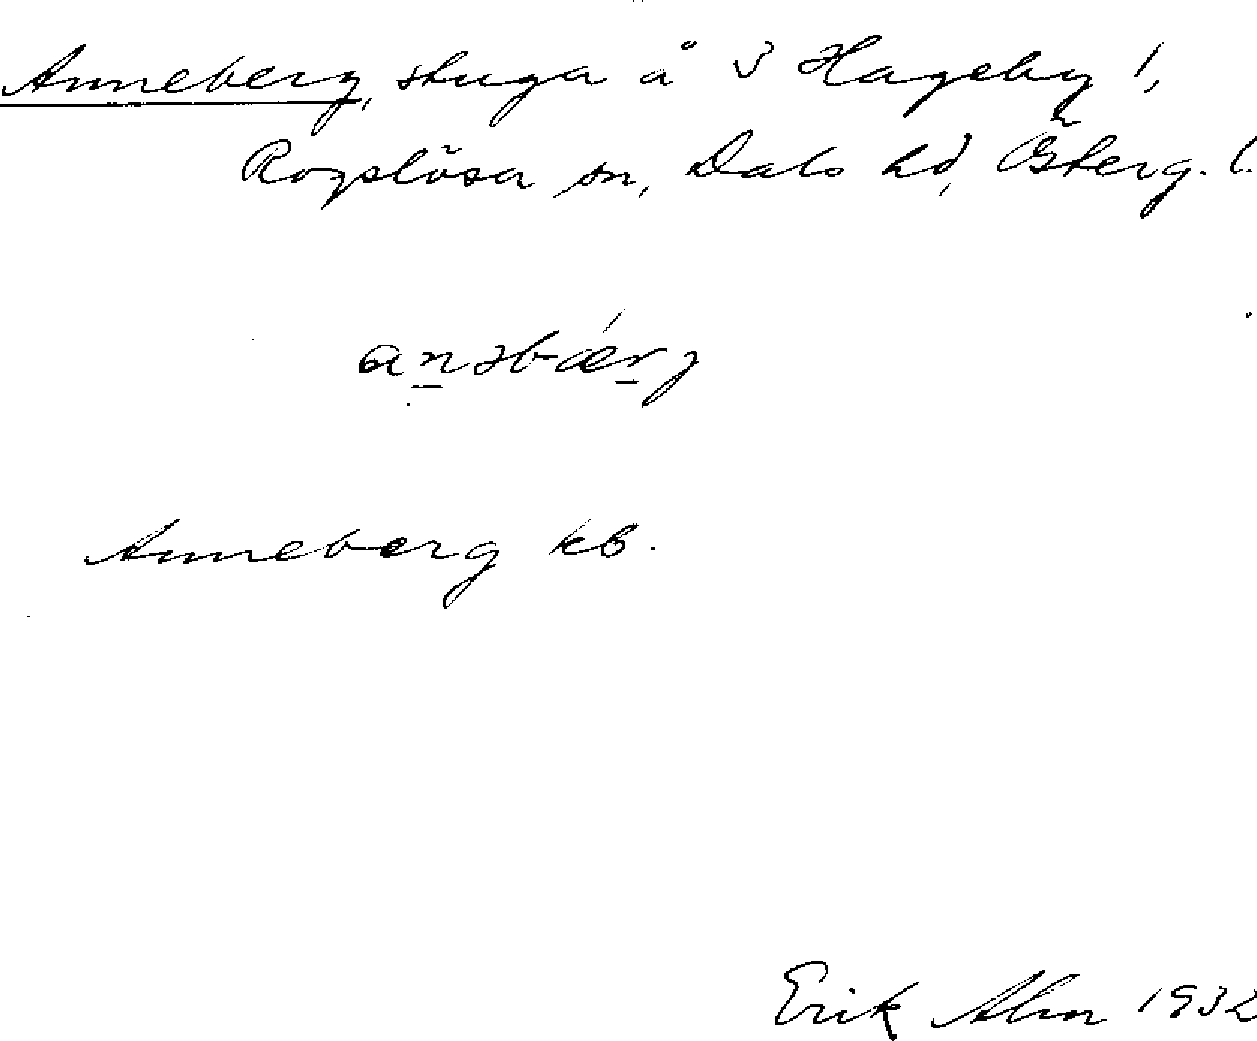 Anneberg, stuga å 3 Hageby 1,
Rogslösa sn, Dals hd, Österg. l.
anəbærj
Anneberg kb.
Erik Alm 1932